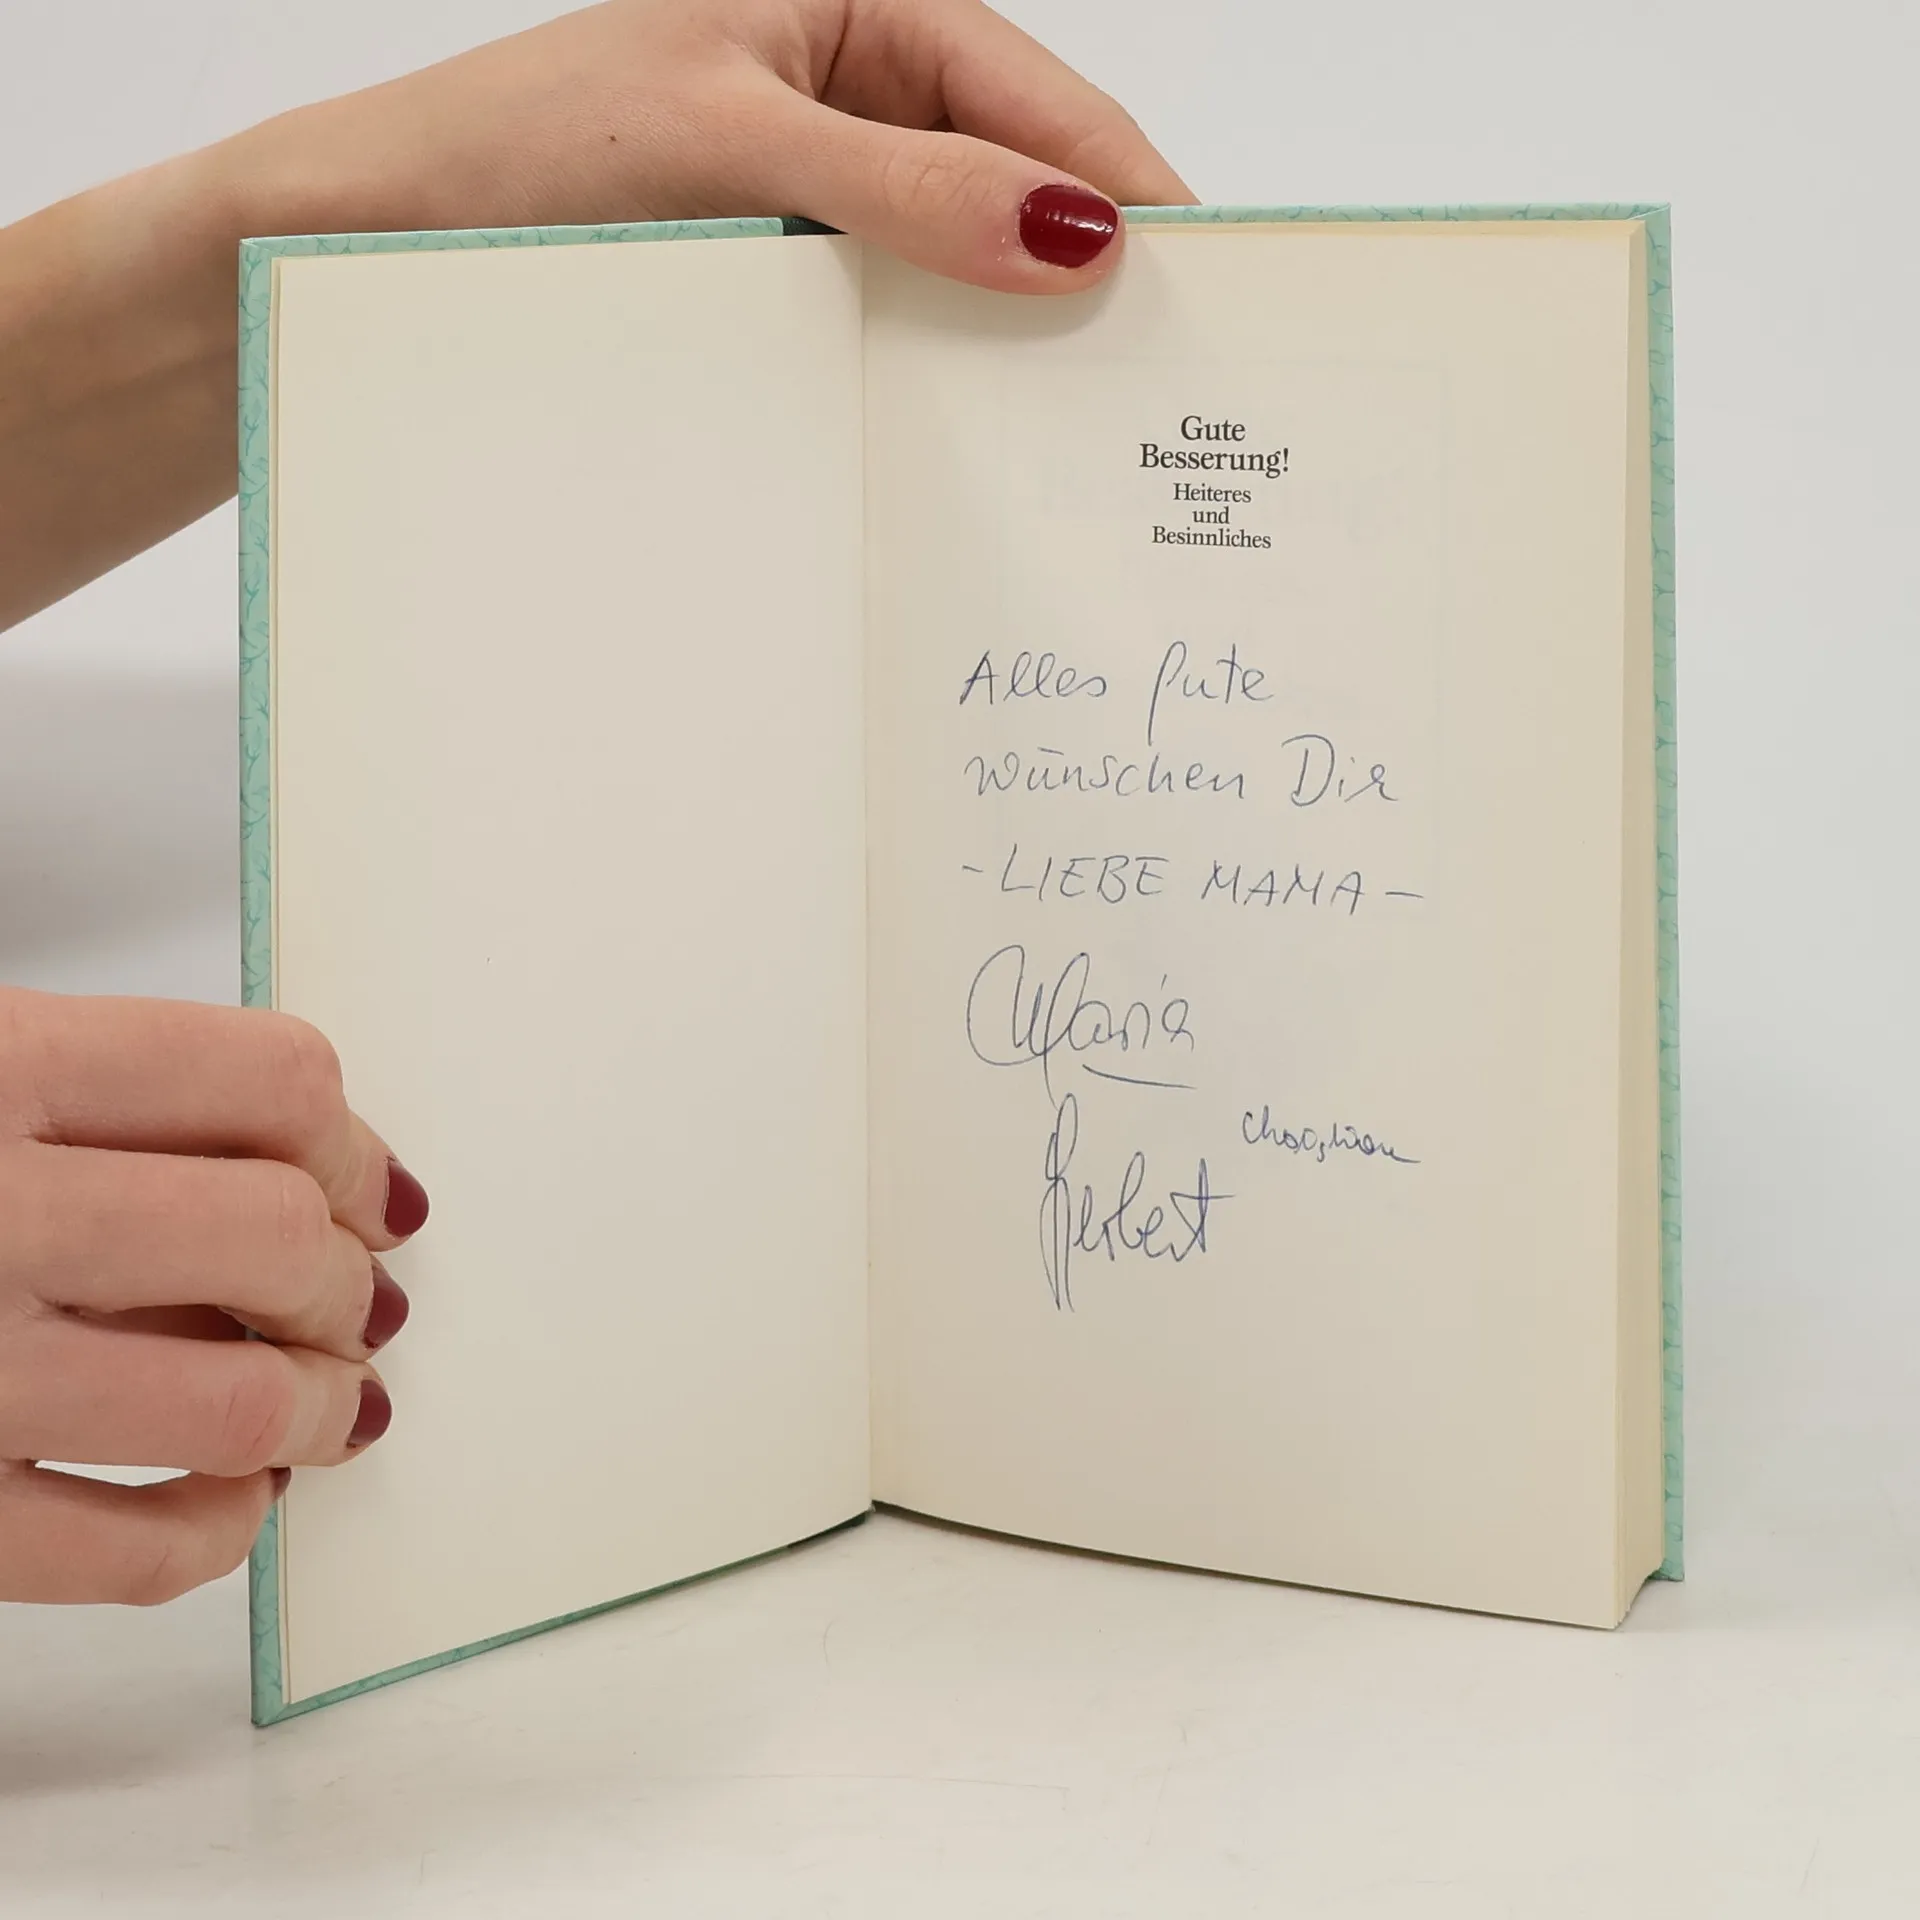 Gute
Besserung!
Heiteres
und
Besinnliches
Alles Gute
wünschen Dir
- LIEBE MAMA -
Maria
Herbert